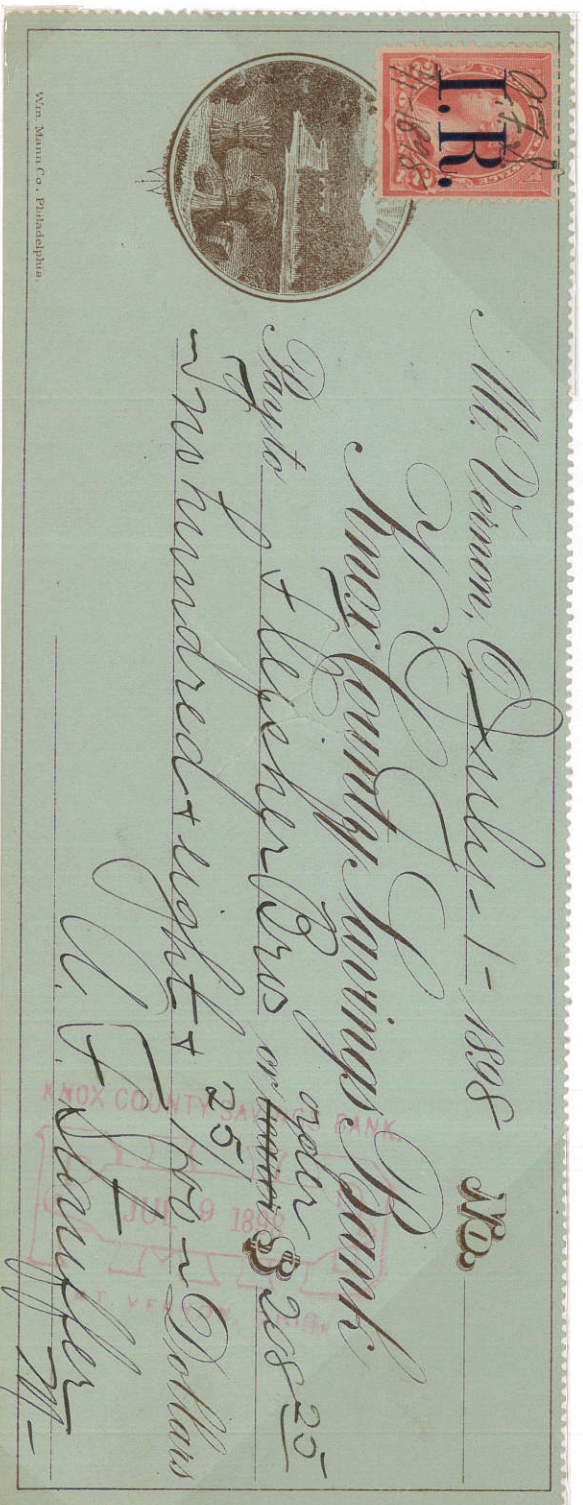 A.F.S
7/1-1898
I.R.
Mt. Vernon, O. July 1- 1898 No.
Knox County Savings Bank
Pay to Fleisher Bros or bearer order $ 208 25
~Two hundred & eight & 25/100 ~ Dollars
A. F. Stauffer
KNOX COUNTY SAVINGS BANK.
JUL 9 1898
MT. VERNON, OHIO.
Wm. Mann Co., Philadelphia.